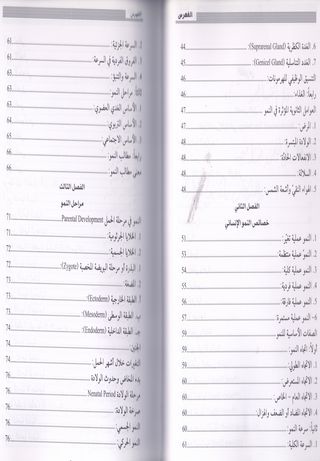 الفهرس
6. الغدة الكظرية (Suprarenal Gland): 44
7. الغدة التناسلية (Genicel Gland): 45
التنسيق الوظيفي للهرمونات: 46
رابعاً: الغذاء: 46
العوامل الثانوية المؤثرة في النمو 47
1. المرض: 47
2. الولادة المبتسرة: 48
3. الانفعالات الحادة: 48
4. السلالة: 48
5. الهواء النقي وأشعة الشمس: 48
الفصل الثاني
خصائص النمو الإنساني
1. النمو عملية تغيّر: 51
2. النمو عملية منتظمة: 53
3. النمو عملية كلية: 54
4. النمو عملية فردية: 55
5. النمو عملية فارقة: 56
6- النمو عملية مستمرة 57
الصفات الأساسية للنمو 59
أولاً: اتجاه النمو: 59
1. الاتجاه الطولي: 59
2. الاتجاه المستعرض: 60
3. الاتجاه العام – الخاص: 60
4. الاتجاه المضاد أو الضعف والهزال: 60
ثانياً: سرعة النمو: 60
1. السرعة الكلية: 61
الفهرس
2. السرعة الجزئية: 61
3. الفروق الفردية في السرعة: 61
4. السرعة والتنبؤ: 63
ثالثاً: مراحل النمو: 63
1. الأساس الغدي العضوي: 63
2. الأساس التربوي: 64
3. الأساس الاجتماعي: 65
رابعاً: مطالب النمو: 66
معنى مطالب النمو: 66
الفصل الثالث
مراحل النمو
النمو في مرحلة الحمل Parental Development: 71
1. الخلايا الجرثومية: 71
2. الخلايا الجسمية: 72
1. البذرة أو مرحلة البويضة المخصبة (Zygote): 72
2. المضغة: 73
أ. الطبقة الخارجية (Ectoderm): 73
ب. الطبقة الوسطى (Mesoderm): 73
ج. الطبقة الداخلية (Endoderm): 74
الجنين: 74
التغيرات خلال أشهر الحمل: 74
بدء المخاض وحدوث الولادة: 75
مرحلة الولادة Nenatal Period: 76
صرخة الولادة: 76
النمو الجسمي: 76
النمو الحركي: 76